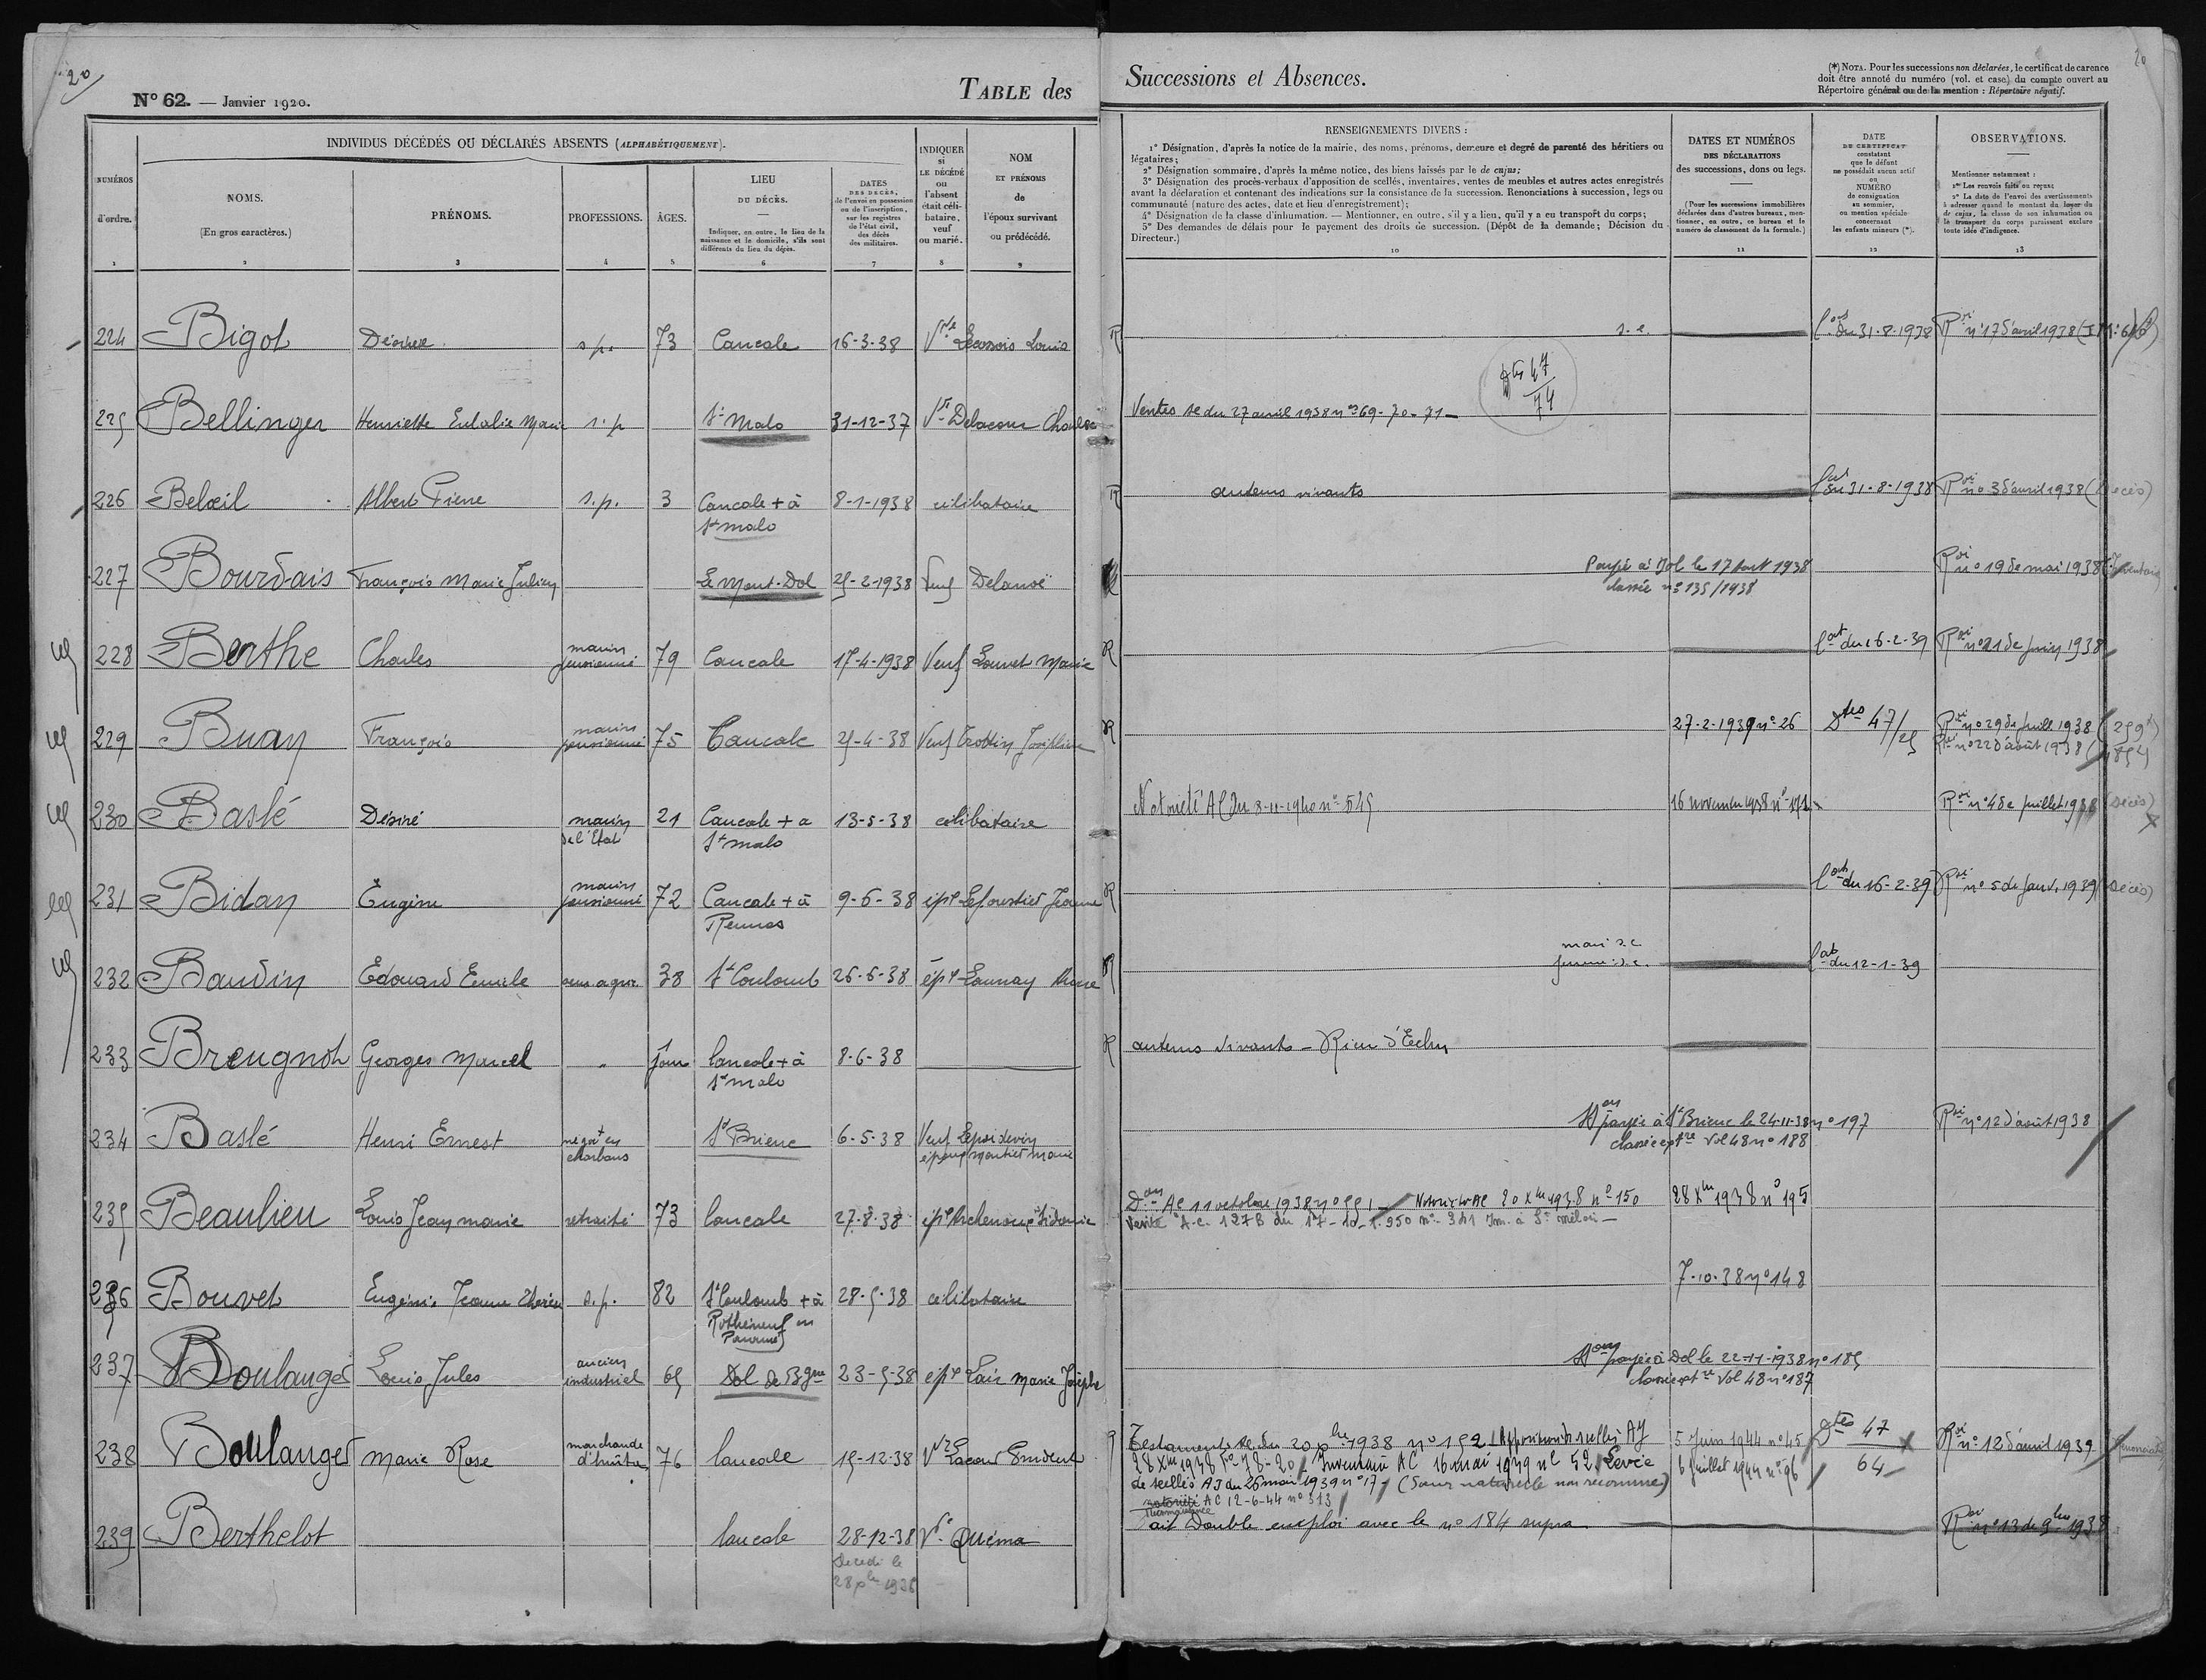 20
N° 62. — Janvier 1920.
TABLE des
Successions et Absences.
(*) NOTA. Pour les successions non déclarées, le certificat de carence
doit être annoté du numéro (vol. et case) du compte ouvert au
Répertoire général ou de la mention : Répertoire négatif.
20
INDIVIDUS DÉCÉDÉS OU DÉCLARÉS ABSENTS (ALPHABÉTIQUEMENT).
NUMÉROS
d'ordre.
1
NOMS.
(En gros caractères.)
2
PRÉNOMS.
3
PROFESSIONS.
4
ÂGES.
5
LIEU
DU DÉCÈS.
Indiquer, en outre, le lieu de la
naissance et le domicile, s'ils sont
différents du lieu du décès.
6
DATES
DES DÉCÈS,
de l'envoi en possession
ou de l'inscription,
sur les registres
de l'état civil,
des décès
des militaires.
7
INDIQUER
si
LE DÉCÉDÉ
ou
l'absent
était céli-
bataire,
veuf
ou marié.
8
NOM
ET PRÉNOMS
de
l'époux survivant
ou prédécédé.
9
RENSEIGNEMENTS DIVERS :
1° Désignation, d'après la notice de la mairie, des noms, prénoms, demeure et degré de parenté des héritiers ou
légataires;
2° Désignation sommaire, d'après la même notice, des biens laissés par le de cujus;
3° Désignation des procès-verbaux d'apposition de scellés, inventaires, ventes de meubles et autres actes enregistrés
avant la déclaration et contenant des indications sur la consistance de la succession. Renonciations à succession, legs ou
communauté (nature des actes, date et lieu d'enregistrement);
4° Désignation de la classe d'inhumation. — Mentionner, en outre, s'il y a lieu, qu'il y a eu transport du corps;
5° Des demandes de délais pour le payement des droits de succession. (Dépôt de la demande; Décision du
Directeur.)
10
DATES ET NUMÉROS
DES DÉCLARATIONS
des successions, dons ou legs.
(Pour les successions immobilières
déclarées dans d'autres bureaux, men-
tionner, en outre, ce bureau et le
numéro de classement de la formule.)
11
DATE
DU CERTIFICAT
constatant
que le défunt
ne possédait aucun actif
ou
NUMÉRO
de consignation
au sommier,
ou mention spéciale
concernant
les enfants mineurs (*).
12
OBSERVATIONS.
Mentionner notamment :
1° Les renvois faits ou reçus;
2° La date de l'envoi des avertissements
à adresser quand le montant du loyer du
de cujus, la classe de son inhumation ou
le transport du corps paraissent exclure
toute idée d'indigence.
13
224 Bigot Désirée s.p. 73 Cancale 16-3-38 Vve Lecossois Louis R s.e. Cat du 31-8-1938 Roi n° 17 d'avril 1938
225 Bellinger Henriette Eulalie Marie s.p. St Malo 31-12-37 Vve Delacour Charles Ventes se du 27 avril 1938 nos 69-70-71 Dtes 47/74
226 Belœil Albert Pierre s.p. 3 Cancale + à 8-1-1938 célibataire R auteurs vivants Cat du 31-8-1938 Roi n° 3 d'avril 1938 (Décès)
St malo
227 Bourdais François Marie Julien Le Mont-Dol 25-2-1938 Veuf Delanoë Payée à Dol le 17 Aout 1938 Roi n° 19 de mai 1938
classée n° 135/1938
228 Berthe Charles marin pensionné 79 Cancale 17-4-1938 Veuf Louvet Marie R Cat du 16-2-39 Roi n° 21 de juin 1938
229 Buan François marin pensionné 75 Cancale 25-4-38 Veuf Trottin Joséphine R 27-2-1939 n° 26 Dtes 47/25 Roi n° 29 de Juill. 1938 (259)
Roi n° 22 d'août 1938
230 Baslé Désiré marin 21 Cancale + a 13-5-38 célibataire Notoriété AC du 8-11-1940 n° 545 16 novembre 1938 n° 171 Roi n° 4 de juillet 1938 (Décès)
de l'Etat St malo
231 Bidan Eugène marin pensionné 72 Cancale + à 9-6-38 épx Lefoustier Jeanne R Cat du 16-2-39 Roi n° 5 de Janv. 1939 (Décès)
Rennes
232 Baudin Edouard Emile 38 St Coulomb 26-6-38 épx Launay R mari s.e. Cat du 12-1-39
femme s.e.
233 Breugnot Georges Marcel 1 jour Cancale + à 8-6-38 R auteurs vivants – Rien d'Echu
St malo
234 Baslé Henri Ernest négot en St Brieuc 6-5-38 Veuf Lepoidevin Don payée à St Brieuc le 24-11-38 n° 197 Roi n° 12 d'août 1938
charbons époux Moutier Marie classée Vol 48 n° 188
235 Beaulieu Louis Jean marie retraité 73 Cancale 27-8-38 épx Sidonie Don AC 11 octobre 1938 n° 551 – Notoriété AC 20 Xbre 1938 n° 150 28 Xbre 1938 n° 195
Vente A.C. 127B du 17-10-1950 n° 341 Im. à St Méloir –
236 Bouvet Eugénie Jeanne Thérèse s.p. 82 St Coulomb + à 28-5-38 célibataire 7-10-38 n° 148
Rothéneuf en
Paramé
237 Boulanger Louis Jules ancien industriel 65 Dol de Bgne 23-5-38 épx Lair Marie Josèphe Don payée à Dol le 22-11-1938 n° 185
classée Vol 48 n° 187
238 Boulanger Marie Rose marchande d'huîtres 76 Cancale 15-12-38 Vve Lacour Prudent Testament se du 20 Xbre 1938 n° 152 Apposition de scellés AJ 5 Juin 1944 n° 45 Dtes 47/64 Roi n° 12 d'avril 1939
28 Xbre 1938 f° 78-20 Inventaire AC 16 mai 1939 n° 52 Levée 6 Juillet 1944 n° 96
de scellés AJ du 26 mai 1939 n° 17 (Sœur naturelle non reconnue)
notoriété AC 12-6-44 n° 313
239 Berthelot Cancale 28-12-38 Vve Quéma fait Double emploi avec le n° 184 supra Roi n° 13 de 9bre 1938
Décédé le
28